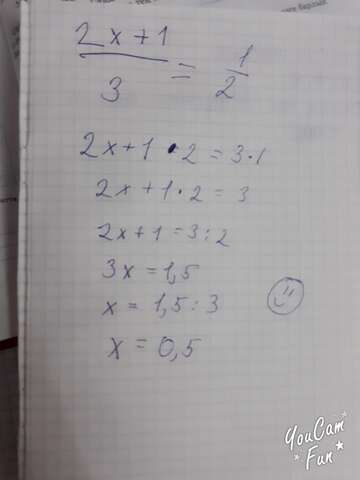 2x+1
3
= 1
2
2x+1·2=3·1
2x+1·2=3
2x+1=3:2
3x=1,5
x=1,5:3
x=0,5
YouCam
Fun